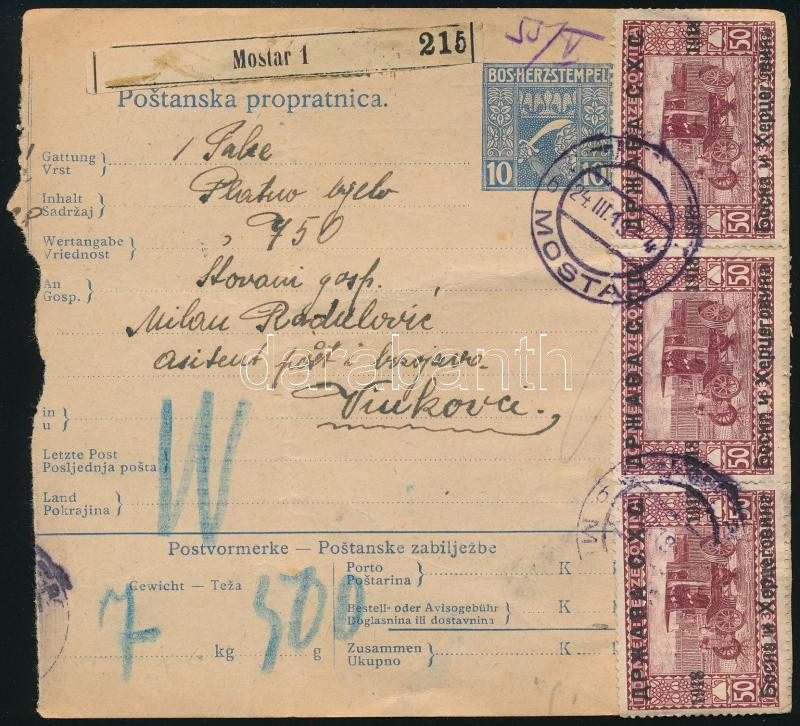 Mostar 1 215
55/V
Poštanska propratnica.
BOS-HERZ STEMPEL
10 10
Gattung
Vrst
Inhalt
Sadržaj
Platno bjelo
Wertangabe
Vriednost
750
An
Gosp.
Štovani gosp.
Milan Radulović
asistent pošt i brzojava
Vinkovci.
in
u
Letzte Post
Posljednja pošta
Land
Pokrajina
W
Postvormerke — Poštanske zabilježbe
Gewicht — Teža
7 kg 500 g
Porto
Poštarina
K
Bestell- oder Avisogebühr
Doglasnina ili dostavnina
K
Zusammen
Ukupno
K
24.III.19
MOSTAR
ДРЖАВА С.Х.С.
1918 1918
Босна и Херцеговина
50 50
ДРЖАВА С.Х.С.
1918 1918
Босна и Херцеговина
50 50
ДРЖАВА С.Х.С.
1918 1918
Босна и Херцеговина
50 50
darabanth